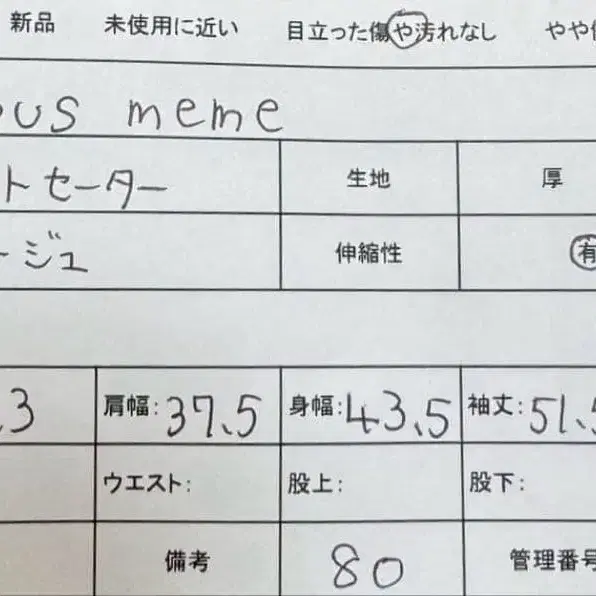 新品 未使用に近い 目立った傷や汚れなし やや
ous meme
トセーター 生地 厚
ージュ 伸縮性 有
.3 肩幅: 37.5 身幅: 43.5 袖丈: 51.5
ウエスト: 股上: 股下:
備考 80 管理番号